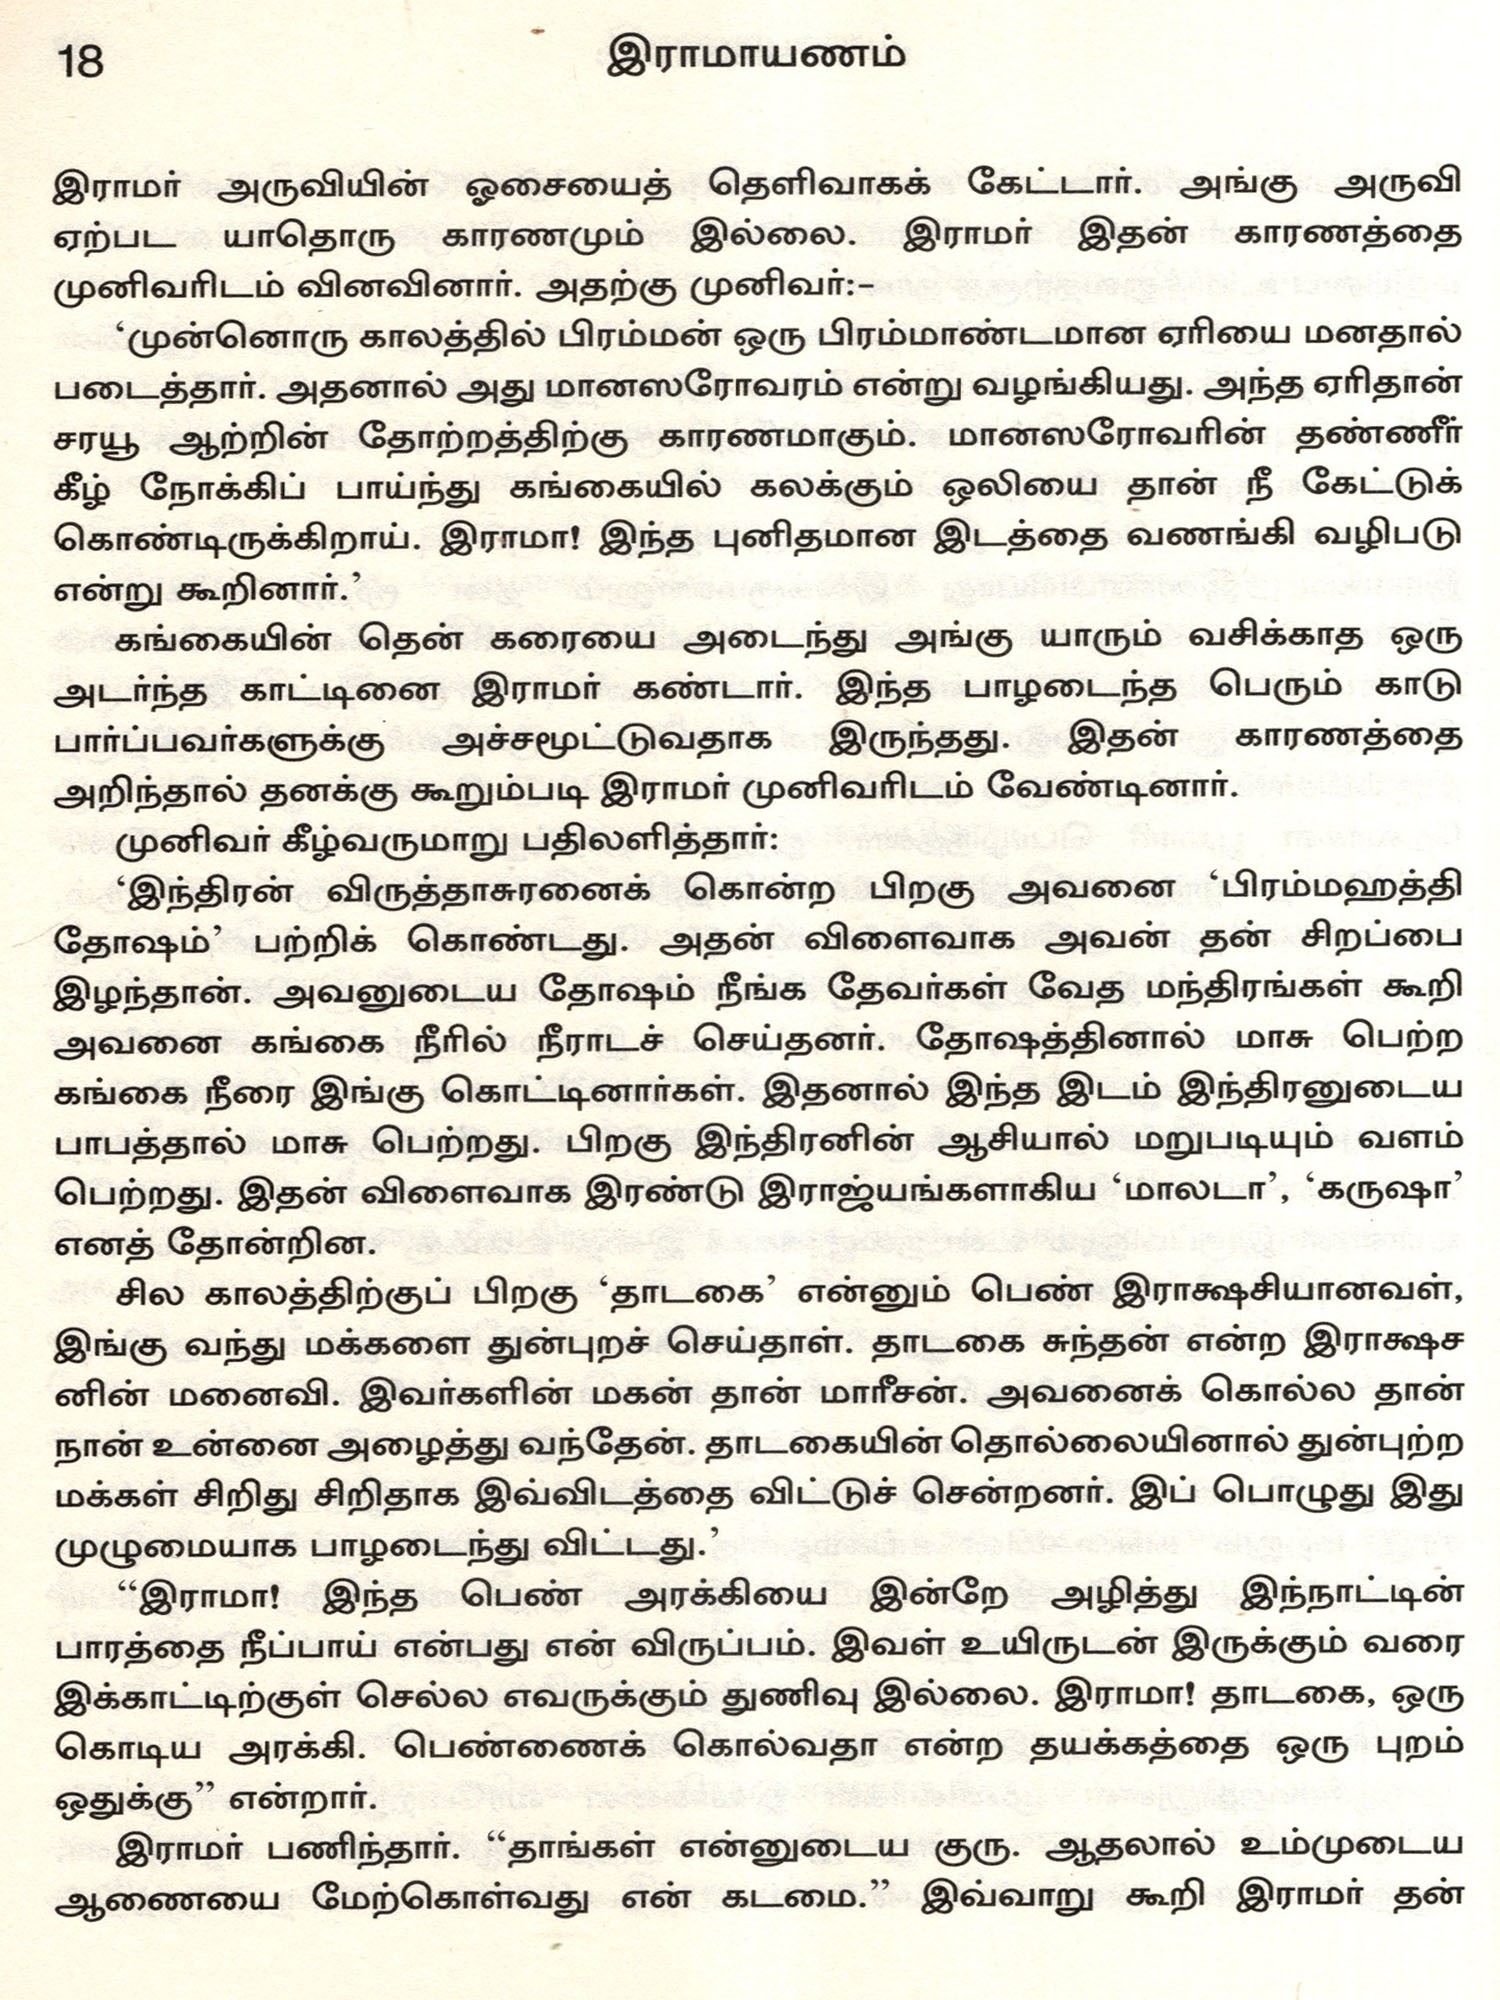 18
இராமாயணம்
இராமர் அருவியின் ஓசையைத் தெளிவாகக் கேட்டார். அங்கு அருவி
ஏற்பட யாதொரு காரணமும் இல்லை. இராமர் இதன் காரணத்தை
முனிவரிடம் வினவினார். அதற்கு முனிவர்:–
‘முன்னொரு காலத்தில் பிரம்மன் ஒரு பிரம்மாண்டமான ஏரியை மனதால்
படைத்தார். அதனால் அது மானஸரோவரம் என்று வழங்கியது. அந்த ஏரிதான்
சரயூ ஆற்றின் தோற்றத்திற்கு காரணமாகும். மானஸரோவரின் தண்ணீர்
கீழ் நோக்கிப் பாய்ந்து கங்கையில் கலக்கும் ஒலியை தான் நீ கேட்டுக்
கொண்டிருக்கிறாய். இராமா! இந்த புனிதமான இடத்தை வணங்கி வழிபடு
என்று கூறினார்.’
கங்கையின் தென் கரையை அடைந்து அங்கு யாரும் வசிக்காத ஒரு
அடர்ந்த காட்டினை இராமர் கண்டார். இந்த பாழடைந்த பெரும் காடு
பார்ப்பவர்களுக்கு அச்சமூட்டுவதாக இருந்தது. இதன் காரணத்தை
அறிந்தால் தனக்கு கூறும்படி இராமர் முனிவரிடம் வேண்டினார்.
முனிவர் கீழ்வருமாறு பதிலளித்தார்:
‘இந்திரன் விருத்தாசுரனைக் கொன்ற பிறகு அவனை ‘பிரம்மஹத்தி
தோஷம்’ பற்றிக் கொண்டது. அதன் விளைவாக அவன் தன் சிறப்பை
இழந்தான். அவனுடைய தோஷம் நீங்க தேவர்கள் வேத மந்திரங்கள் கூறி
அவனை கங்கை நீரில் நீராடச் செய்தனர். தோஷத்தினால் மாசு பெற்ற
கங்கை நீரை இங்கு கொட்டினார்கள். இதனால் இந்த இடம் இந்திரனுடைய
பாபத்தால் மாசு பெற்றது. பிறகு இந்திரனின் ஆசியால் மறுபடியும் வளம்
பெற்றது. இதன் விளைவாக இரண்டு இராஜ்யங்களாகிய ‘மாலடா’, ‘கருஷா’
எனத் தோன்றின.
சில காலத்திற்குப் பிறகு ‘தாடகை’ என்னும் பெண் இராக்ஷசியானவள்,
இங்கு வந்து மக்களை துன்புறச் செய்தாள். தாடகை சுந்தன் என்ற இராக்ஷச
னின் மனைவி. இவர்களின் மகன் தான் மாரீசன். அவனைக் கொல்ல தான்
நான் உன்னை அழைத்து வந்தேன். தாடகையின் தொல்லையினால் துன்புற்ற
மக்கள் சிறிது சிறிதாக இவ்விடத்தை விட்டுச் சென்றனர். இப் பொழுது இது
முழுமையாக பாழடைந்து விட்டது.’
“இராமா! இந்த பெண் அரக்கியை இன்றே அழித்து இந்நாட்டின்
பாரத்தை நீப்பாய் என்பது என் விருப்பம். இவள் உயிருடன் இருக்கும் வரை
இக்காட்டிற்குள் செல்ல எவருக்கும் துணிவு இல்லை. இராமா! தாடகை, ஒரு
கொடிய அரக்கி. பெண்ணைக் கொல்வதா என்ற தயக்கத்தை ஒரு புறம்
ஒதுக்கு” என்றார்.
இராமர் பணிந்தார். “தாங்கள் என்னுடைய குரு. ஆதலால் உம்முடைய
ஆணையை மேற்கொள்வது என் கடமை.” இவ்வாறு கூறி இராமர் தன்